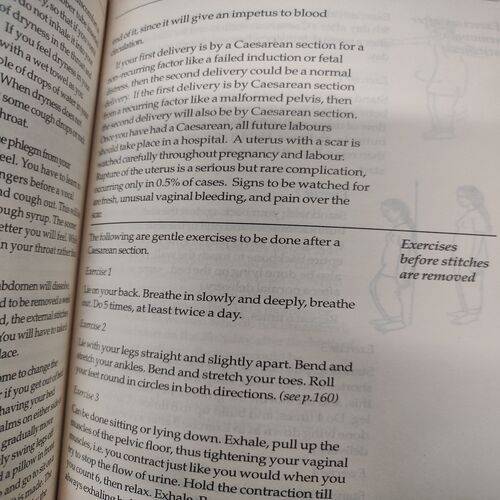 of dryness in
do not inhale it into your
of dryness in the throat and
If you feel dryness in
with a wet towel, as you
of drops of water in your
When dryness does not
some cough drops or suck
throat.
phlegm from your
feel. You have to learn
before a vocal
and cough out. This will
cough syrup. The sooner
better you will feel. While
in your throat rather
abdomen will dissolve,
to be removed a week
the external stitches
You will have to take
place.
to change the
if you get out of bed
having your bed
palms on either side
gradually more
swing legs off
a pillow in front
and go to sit
is made. The
end of it, since it will give an impetus to blood
circulation.
If your first delivery is by a Caesarean section for a
non-recurring factor like a failed induction or fetal
distress, then the second delivery could be a normal
delivery. If the first delivery is by Caesarean section
from a recurring factor like a malformed pelvis, then
the second delivery will also be by Caesarean section.
Once you have had a Caesarean, all future labours
should take place in a hospital. A uterus with a scar is
watched carefully throughout pregnancy and labour.
Rupture of the uterus is a serious but rare complication,
occurring only in 0.5% of cases. Signs to be watched for
are fresh, unusual vaginal bleeding, and pain over the
scar.
The following are gentle exercises to be done after a
Caesarean section.
Exercises
before stitches
are removed
Exercise 1
Lie on your back. Breathe in slowly and deeply, breathe
out. Do 5 times, at least twice a day.
Exercise 2
Lie with your legs straight and slightly apart. Bend and
stretch your ankles. Bend and stretch your toes. Roll
your feet round in circles in both directions. (see p.160)
Exercise 3
Can be done sitting or lying down. Exhale, pull up the
muscles of the pelvic floor, thus tightening your vaginal
muscles, i.e, you contract just like you would when you
try to stop the flow of urine. Hold the contraction till
you count 6, then relax. Exhale.
always exhaling